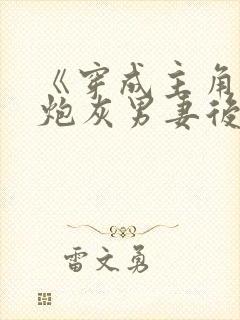 《穿成主角
炮灰男妻後
雷文勇